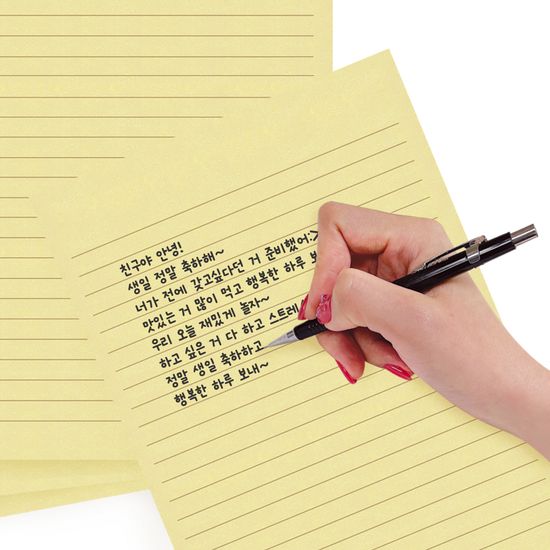 친구야 안녕!
생일 정말 축하해~
너가 전에 갖고싶다던 거 준비했어:>
맛있는 거 많이 먹고 행복한 하루
우리 오늘 재밌게 놀자~
하고 싶은 거 다 하고 스트레
정말 생일 축하하고
행복한 하루 보내~